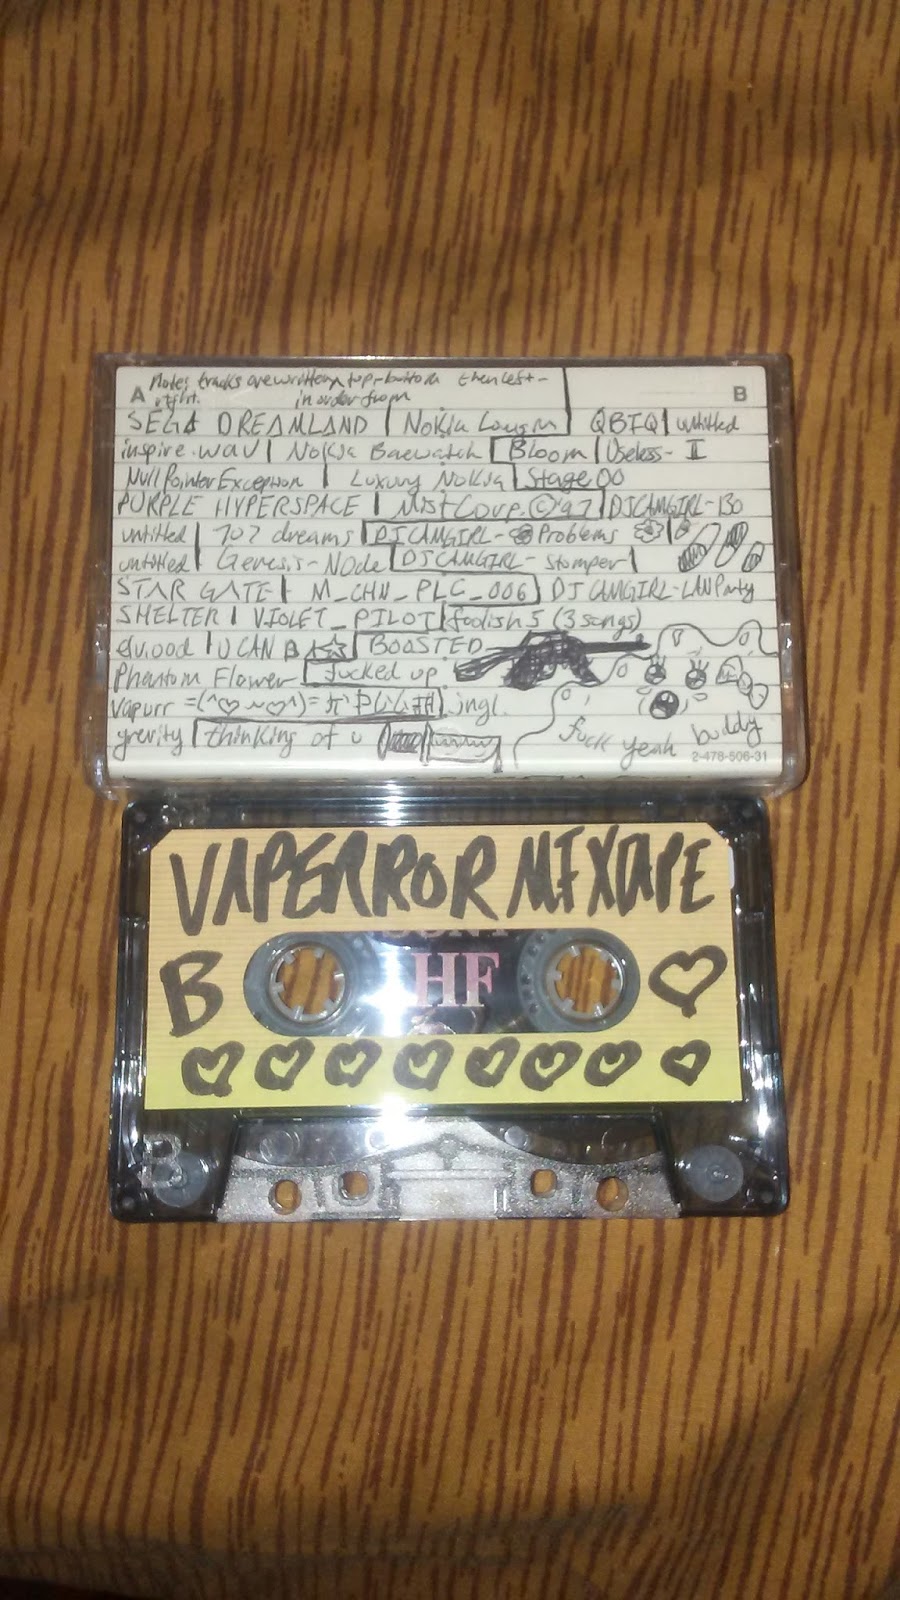 A Note: tracks are written top-bottom then left-
right. in order from B
SEGA DREAMLAND | Nokia Loungin | QBFQ | untitled
inspire.wav | Nokia Baewatch | Bloom | Useless- II
NullPointerException | Luxury Nokia | Stage 00
PURPLE HYPERSPACE | Mist Corp.©'97 | DJCAMGIRL-130
untitled | 707 dreams | DJCAMGIRL- Problems
untitled | Genesis-NOde | DJCAMGIRL- Stomper |
STAR GATE | M_CHN_PLC_006 | DJ CAMGIRL-LANParty
SHELTER | VIOLET_PILOT | foolish 5 (3 songs)
dv.ood | U CAN B A ☆ | BOOSTED
Phantom Flower | fucked up
Vapurr =(^♡~♡^)= jngl.
grevity | thinking of u
fuck yeah buddy
2-478-506-31
VAPERROR MIXTAPE
B HF ♡
♡ ♡ ♡ ♡ ♡ ♡ ♡ ♡
B